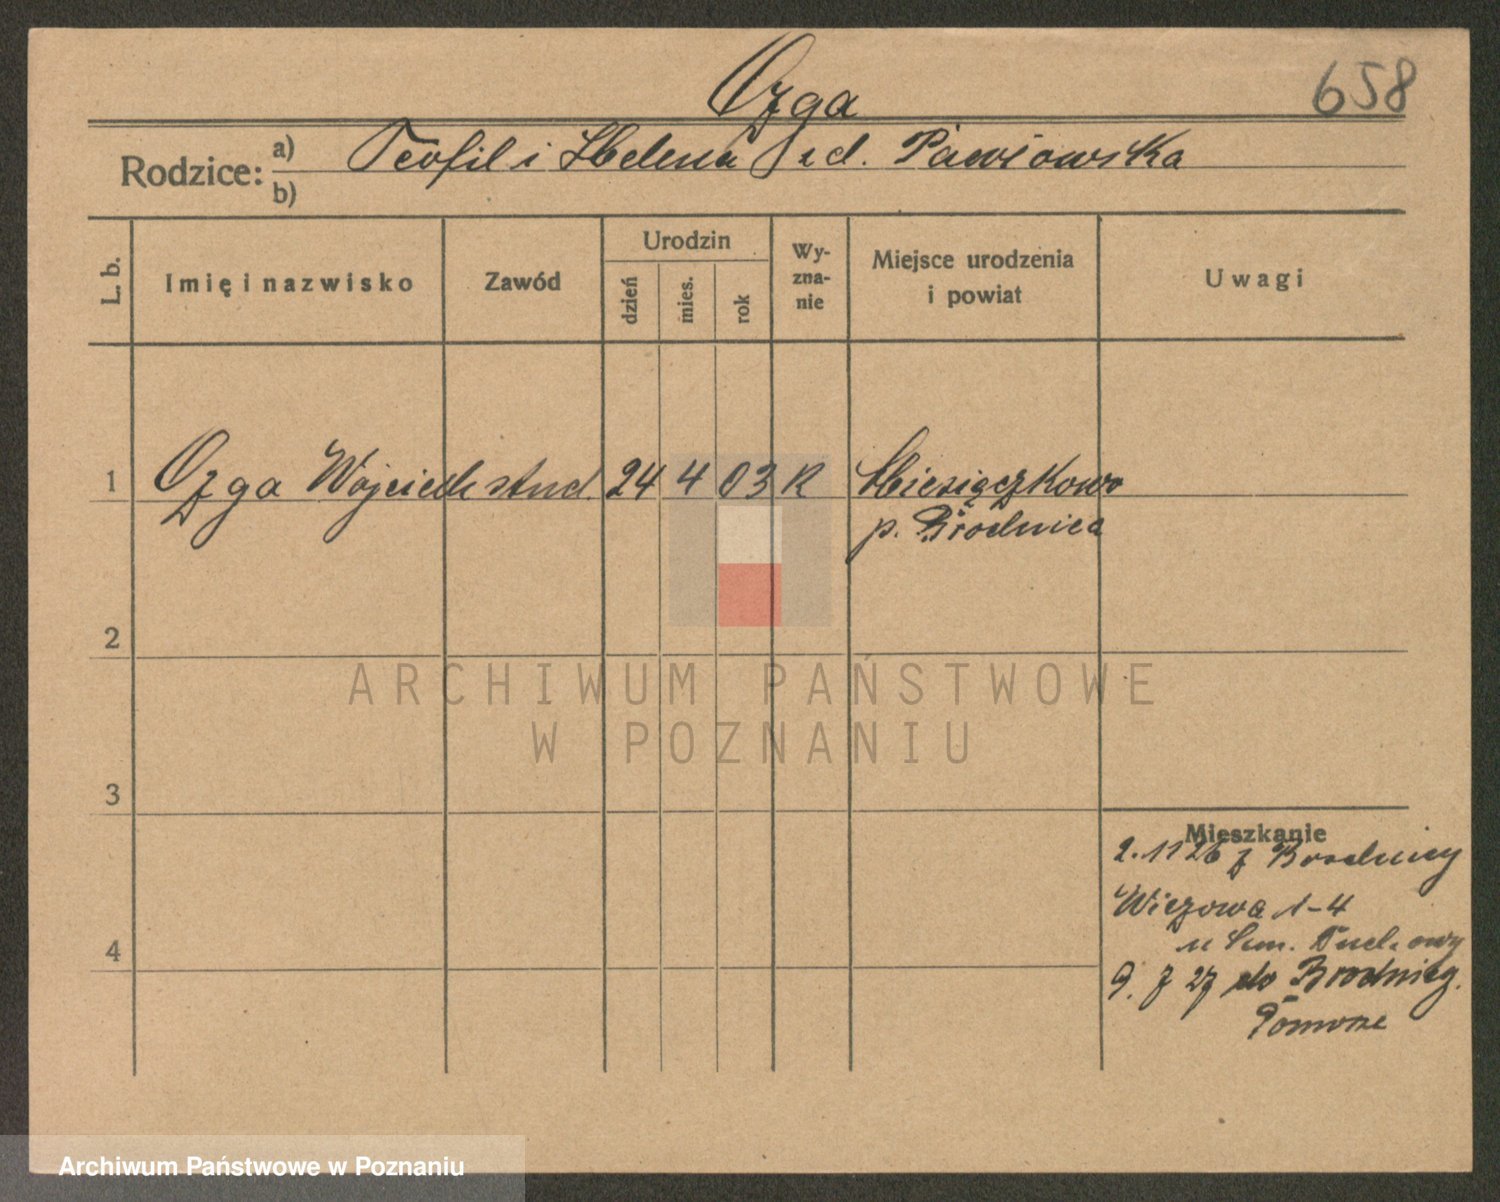 Ozga
658
Rodzice: a) Teofil i Helena zd. Pawłowska
b)
L. b.
Imię i nazwisko
Zawód
Urodzin
dzień
mies.
rok
Wy-
zna-
nie
Miejsce urodzenia
i powiat
Uwagi
1 Ozga Wojciech stud. 24 4 03 R Miesiączkowo
p. Brodnica
2
ARCHIWUM PAŃSTWOWE
W POZNANIU
3
Mieszkanie
2. 11 26 z Brodnicy
Wieżowa 1-4
u Sem. Duchowy
9. 7 27 do Brodnicy.
Pomorze
4
Archiwum Państwowe w Poznaniu